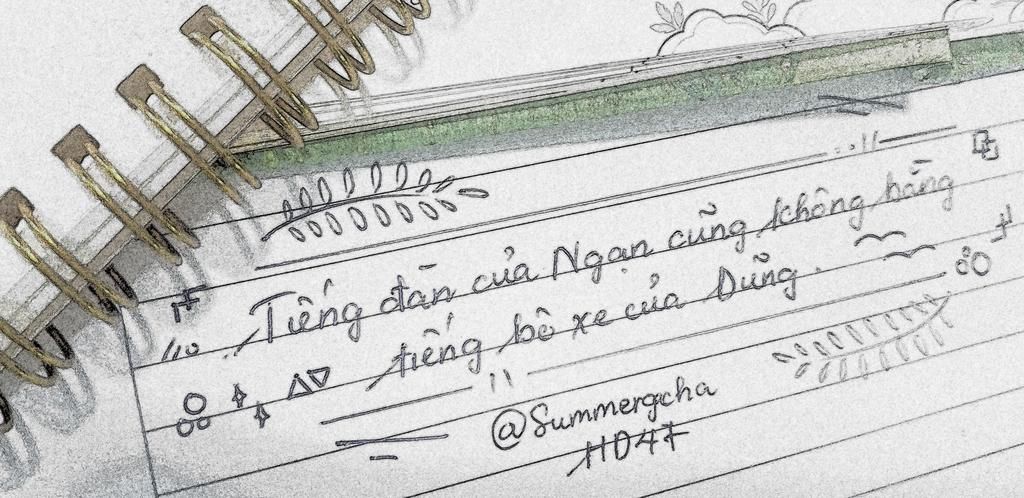 Tiếng đàn của Ngạn cũng không bằng
tiếng bô xe của Dũng.
@Summergcha
HD4F